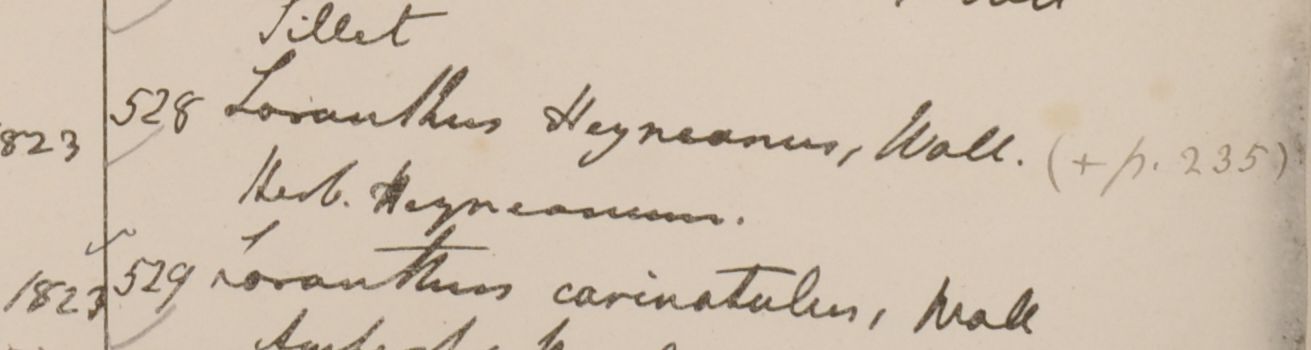 Sillet
1823 528 Loranthus Heyneanus, Wall. (+ p. 235)
Herb. Heyneanum.
1823 529 Loranthus carinatulus, Wall